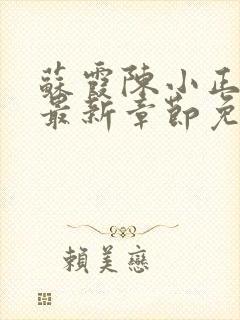 蘇霞陳小正
最新章節免
賴美戀